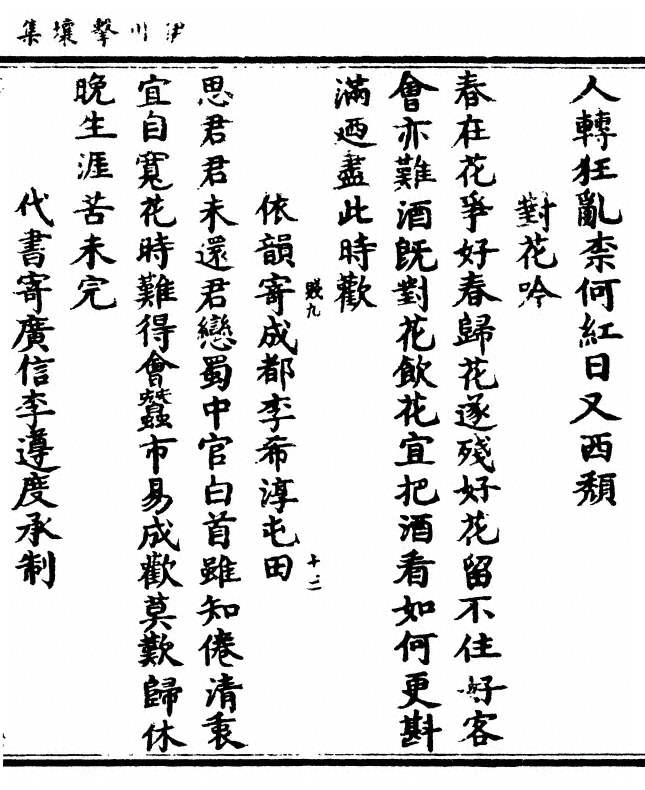 伊川擊壤集
人轉狂亂柰何紅日又西頹
對花吟
春在花爭好春歸花遂殘好花留不住好客
會亦難酒旣對花飲花宜把酒看如何更斟
滿迺盡此時歡
依韻寄成都李希淳屯田
思君君未還君戀蜀中官白首雖知倦清衷
宜自寬花時難得會蠶市易成歡莫歎歸休
晚生涯苦未完
代書寄廣信李遵度承制
賤九
十二